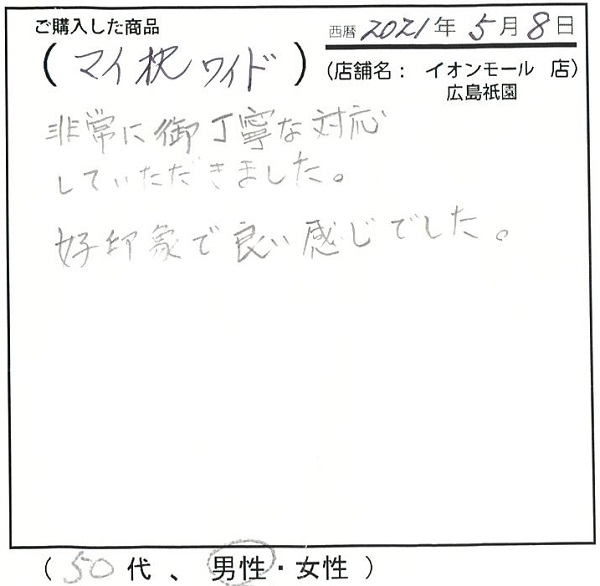 ご購入した商品
西暦 2021年 5月 8日
(マイ枕ワイド)
(店舗名： イオンモール 店)
広島祇園
非常に御丁寧な対応
していただきました。
好印象で良い感じでした。
( 50代 、 男性・女性 )